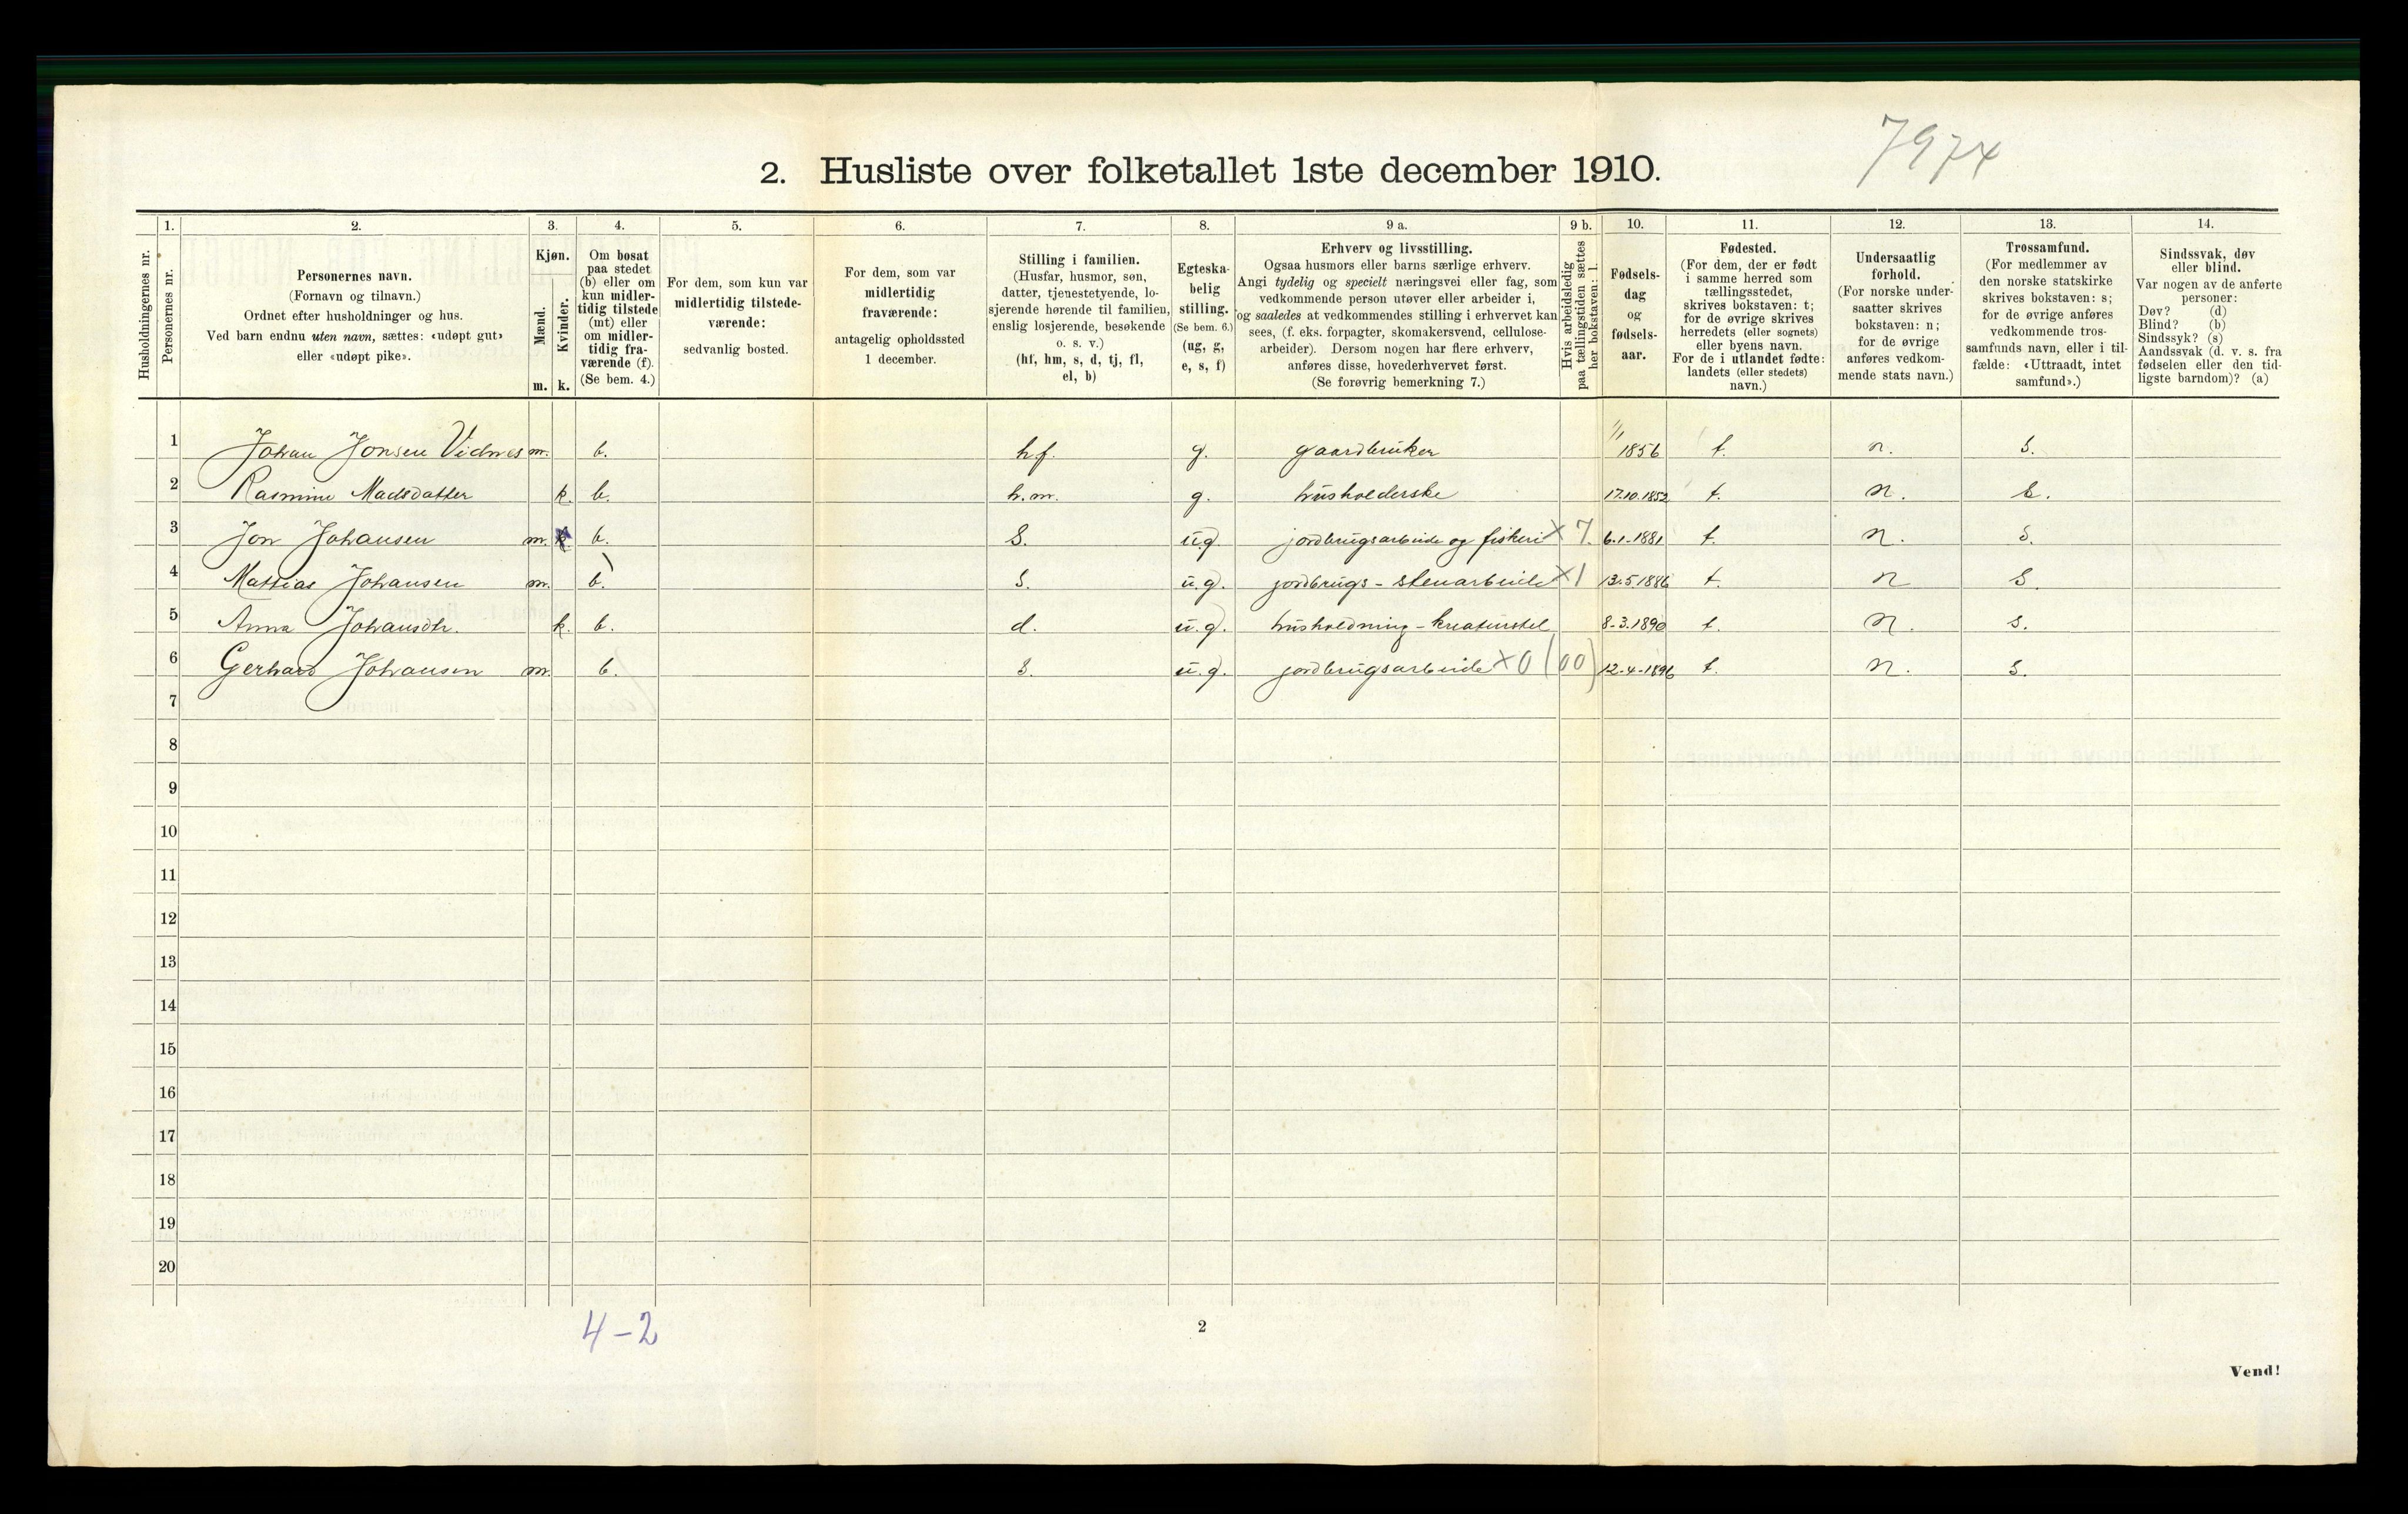 7974
2. Husliste over folketallet 1ste december 1910.
Husholdningernes nr.
1. Personernes nr.
2. Personernes navn. (Fornavn og tilnavn.) Ordnet efter husholdninger og hus. Ved barn endnu uten navn, sættes: «udøpt gut» eller «udøpt pike».
3. Kjøn. Mænd. m. Kvinder. k.
4. Om bosat paa stedet (b) eller om kun midlertidig tilstede (mt) eller om midlertidig fraværende (f). (Se bem. 4.)
5. For dem, som kun var midlertidig tilstedeværende: sedvanlig bosted.
6. For dem, som var midlertidig fraværende: antagelig opholdssted 1 december.
7. Stilling i familien. (Husfar, husmor, søn, datter, tjenestetyende, losjerende hørende til familien, enslig losjerende, besøkende o. s. v.) (hf, hm, s, d, tj, fl, el, b)
8. Egteskabelig stilling. (Se bem. 6.) (ug, g, e, s, f)
9 a. Erhverv og livsstilling. Ogsaa husmors eller barns særlige erhverv. Angi tydelig og specielt næringsvei eller fag, som vedkommende person utøver eller arbeider i, og saaledes at vedkommendes stilling i erhvervet kan sees, (f. eks. forpagter, skomakersvend, cellulosearbeider). Dersom nogen har flere erhverv, anføres disse, hovederhvervet først. (Se forøvrig bemerkning 7.)
9 b. Hvis arbeidsledig paa tællingstiden sættes her bokstaven: l.
10. Fødselsdag og fødselsaar.
11. Fødested. (For dem, der er født i samme herred som tællingsstedet, skrives bokstaven: t; for de øvrige skrives herredets (eller sognets) eller byens navn. For de i utlandet fødte: landets (eller stedets) navn.)
12. Undersaatlig forhold. (For norske undersaatter skrives bokstaven: n; for de øvrige anføres vedkommende stats navn.)
13. Trossamfund. (For medlemmer av den norske statskirke skrives bokstaven: s; for de øvrige anføres vedkommende trossamfunds navn, eller i tilfælde: «Uttraadt, intet samfund».)
14. Sindssvak, døv eller blind. Var nogen av de anførte personer: Døv? (d) Blind? (b) Sindssyk? (s) Aandssvak (d. v. s. fra fødselen eller den tidligste barndom)? (a)
1 Johan Jonsen Vidnes m. b. hf. g. gaardbruker 1/1 1856 t. n. s.
2 Rasmine Madsdatter k. b. h.m. g. husholderske 17.10.1852 t. n. s.
3 Jon Johansen m. b. s. ug. jordbrugsarbeide og fiskeri X 7. 6.1.1881 t. n. s.
4 Mattias Johansen m. b. s. u.g. jordbrugs - stenarbeide X 1 13.5.1886 t. n s.
5 Anna Johansdtr. k. b. d. u.g. husholdning - kreaturstel 8-3.1890 t. n. s.
6 Gerhard Johansen m. b. s. u.g. jordbrugsarbeide X 0 (00) 12-4-1896 t. n. s.
7
8
9
10
11
12
13
14
15
16
17
18
19
20
4-2
2
Vend!